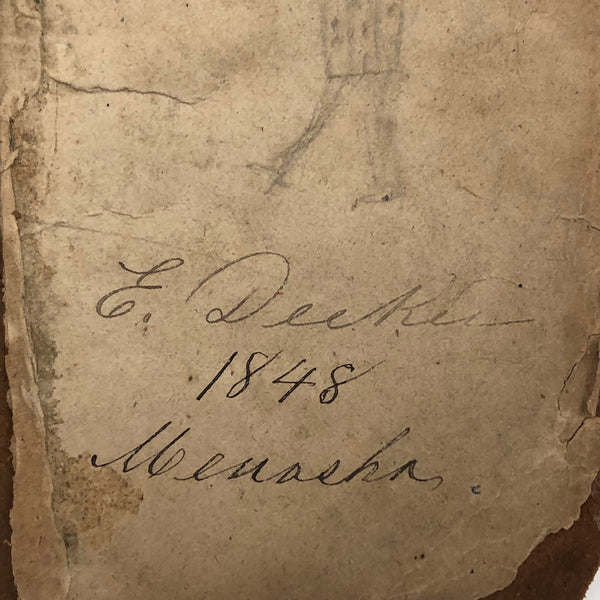 E. Decker
1848
Menasha.